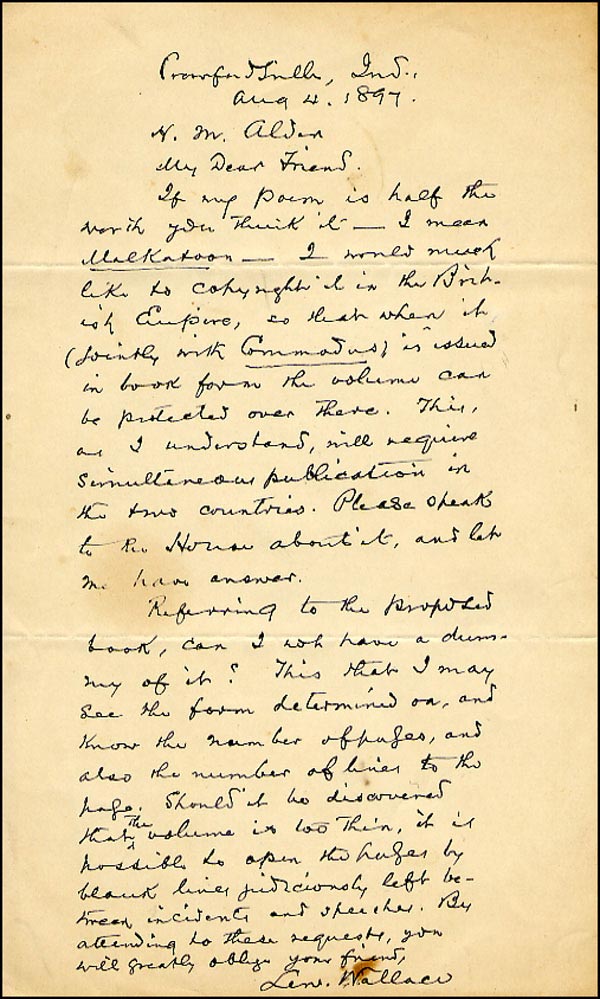 Crawfordsville, Ind.,
Aug 4. 1897.
H. M. Alden
My Dear Friend.
If my poem is half the
worth you think it — I mean
Malkatoon — I would much
like to copyright it in the Brit-
ish Empire, so that when it
(jointly with Commodus) is issued
in book form the volume can
be protected over there. This,
as I understand, will require
simultaneous publication in
the two countries. Please speak
to the House about it, and let
me have answer.
Referring to the proposed
book, can I not have a dum-
my of it? This that I may
see the form determined on, and
know the number of pages, and
also the number of lines to the
page. Should it be discovered
that the volume is too thin, it is
possible to open the pages by
blank lines judiciously left be-
tween incidents and speeches. By
attending to these requests, you
will greatly oblige your friend,
Lew. Wallace